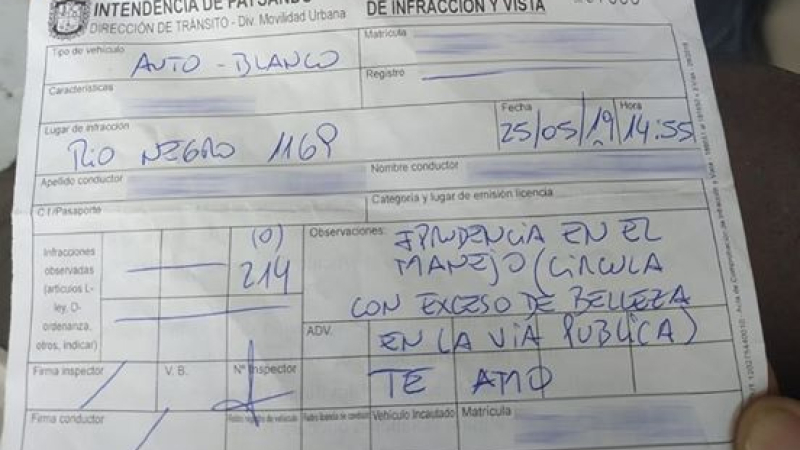 INTENDENCIA DE PAYSANDÚ
DE INFRACCIÓN Y VISTA
DIRECCIÓN DE TRÁNSITO - Div. Movilidad Urbana
Tipo de vehículo
AUTO - BLANCO
Matrícula
Características
Registro
Lugar de infracción
RIO NEGRO 1169
Fecha
25/05/19
Hora
14:55
Apellido conductor
Nombre conductor
C.I./Pasaporte
Categoría y lugar de emisión licencia
Infracciones
observadas
(artículos L-
ley, O-
ordenanza,
otros, indicar)
(O)
214
Observaciones:
IPRUDENCIA EN EL
MANEJO (CIRCULA
CON EXCESO DE BELLEZA
EN LA VIA PUBLICA)
ADV.
TE AMO
Firma inspector
V. B.
Nº Inspector
Firma conductor
Vehículo Incautado
Matrícula